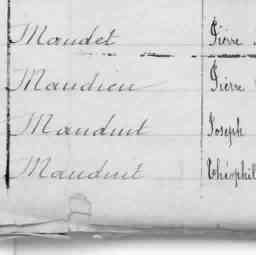 Maudet Pierre
Maudieu Pierre
Mauduit Joseph
Mauduit Théophil